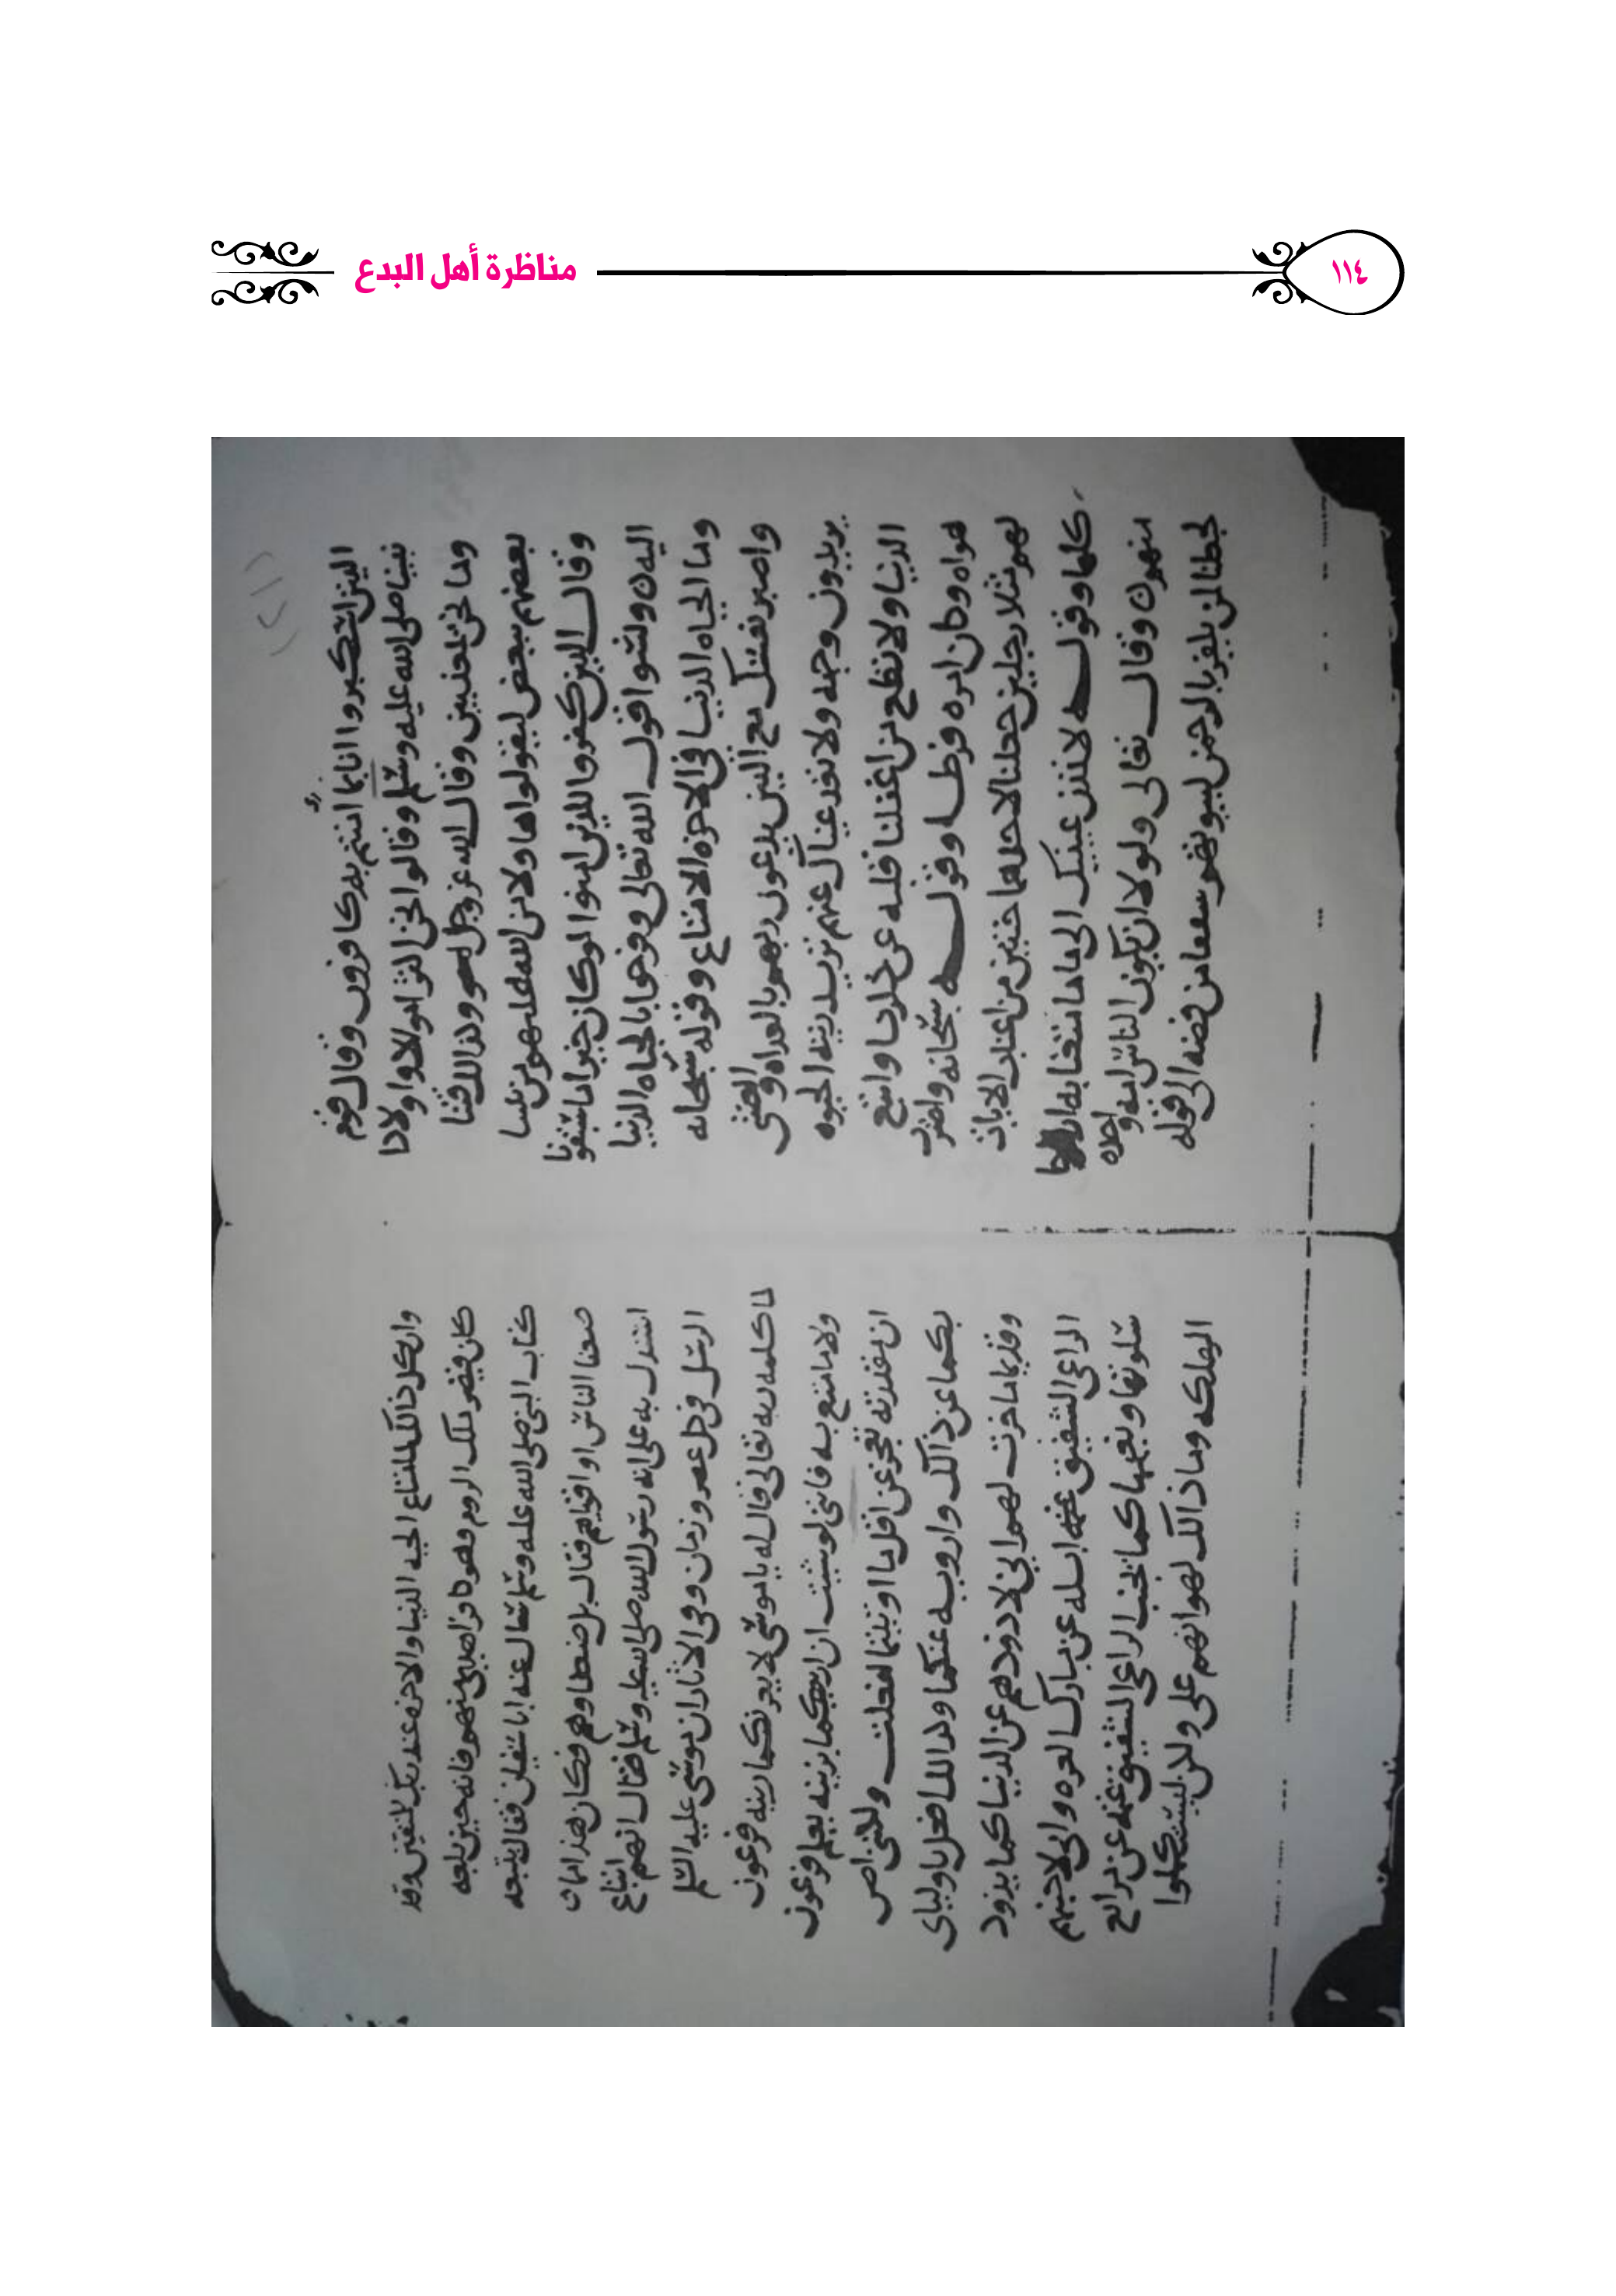 ١١٤
مناظرة أهل البدع
الذين استكبروا انا بما امنتم به كافرون وقال قوم
نبينا صلى الله عليه وسلم وقالوا نحن اكثر اموالا واولادا
وما نحن بمعذبين وقال الله عز وجل وكذلك فتنا
بعضهم ببعض ليقولوا اهاولا من الله عليهم من بيننا
وقال الذين كفروا للذين امنوا لو كان خيرا ما سبقونا
اليه وقول الله تعالى وفرحوا بالحياه الدنيا
وما الحياه الدنيا في الاخره الا متاع وقوله سبحانه
واصبر نفسك مع الذين يدعون ربهم بالغداه والعشي
يريدون وجهه ولا تعد عيناك عنهم تريد زينه الحيوه
الدنيا ولا تطع من اغفلنا قلبه عن ذكرنا واتبع
هواه وكان امره فرطا وقوله سبحانه واضرب
لهم مثلا رجلين جعلنا لاحدهما جنتين من اعناب الايات
كلها وقوله لا تمدن عينيك الى ما متعنا به ازواجا
منهم وقال تعالى ولولا ان يكون الناس امه واحده
لجعلنا لمن يكفر بالرحمن لبيوتهم سقفا من فضه الى قوله
وان كل ذالك لما متاع الحيه الدنيا والاخره عند ربك للمتقين وقد
كان قيصر ملك الروم وهو كافر اهدى منهم فانه حين بلغه
كتاب النبي صلى الله عليه وسلم سال عنه ابا سفيان فقال يتبعه
ضعفا الناس او اقوياهم فقال بل ضعفاوهم فكان هذا مما
استدل به على انه رسول الله صلى الله عليه وسلم فقال انهم اتباع
الرسل في كل عصر وزمان وفي الاثار ان موسى عليه السلم
لما كلمه ربه تعالى قال له يا موسى لا يغرنكما زينه فرعون
ولا ما متع به فانني لو شيت ان ازينكما بزينه يعلم فرعون
ان مقدرته تعجز عن اقل ما اوتيتما لفعلت ولكنني اص
بكما عن ذالك وازويه عنكما وكذالك افعل باوليائي
وقديما ما خرت لهم اني لاذودهم عن الدنيا كما يذود
الراعي الشفيق غنمه ابله عن مبارك العره واني لاجنبهم
سلوتها ونعيمها كما يجنب الراعي الشفيق غنمه عن مراتع
الهلكه وما ذالك لهوانهم علي ولكن ليستكملوا